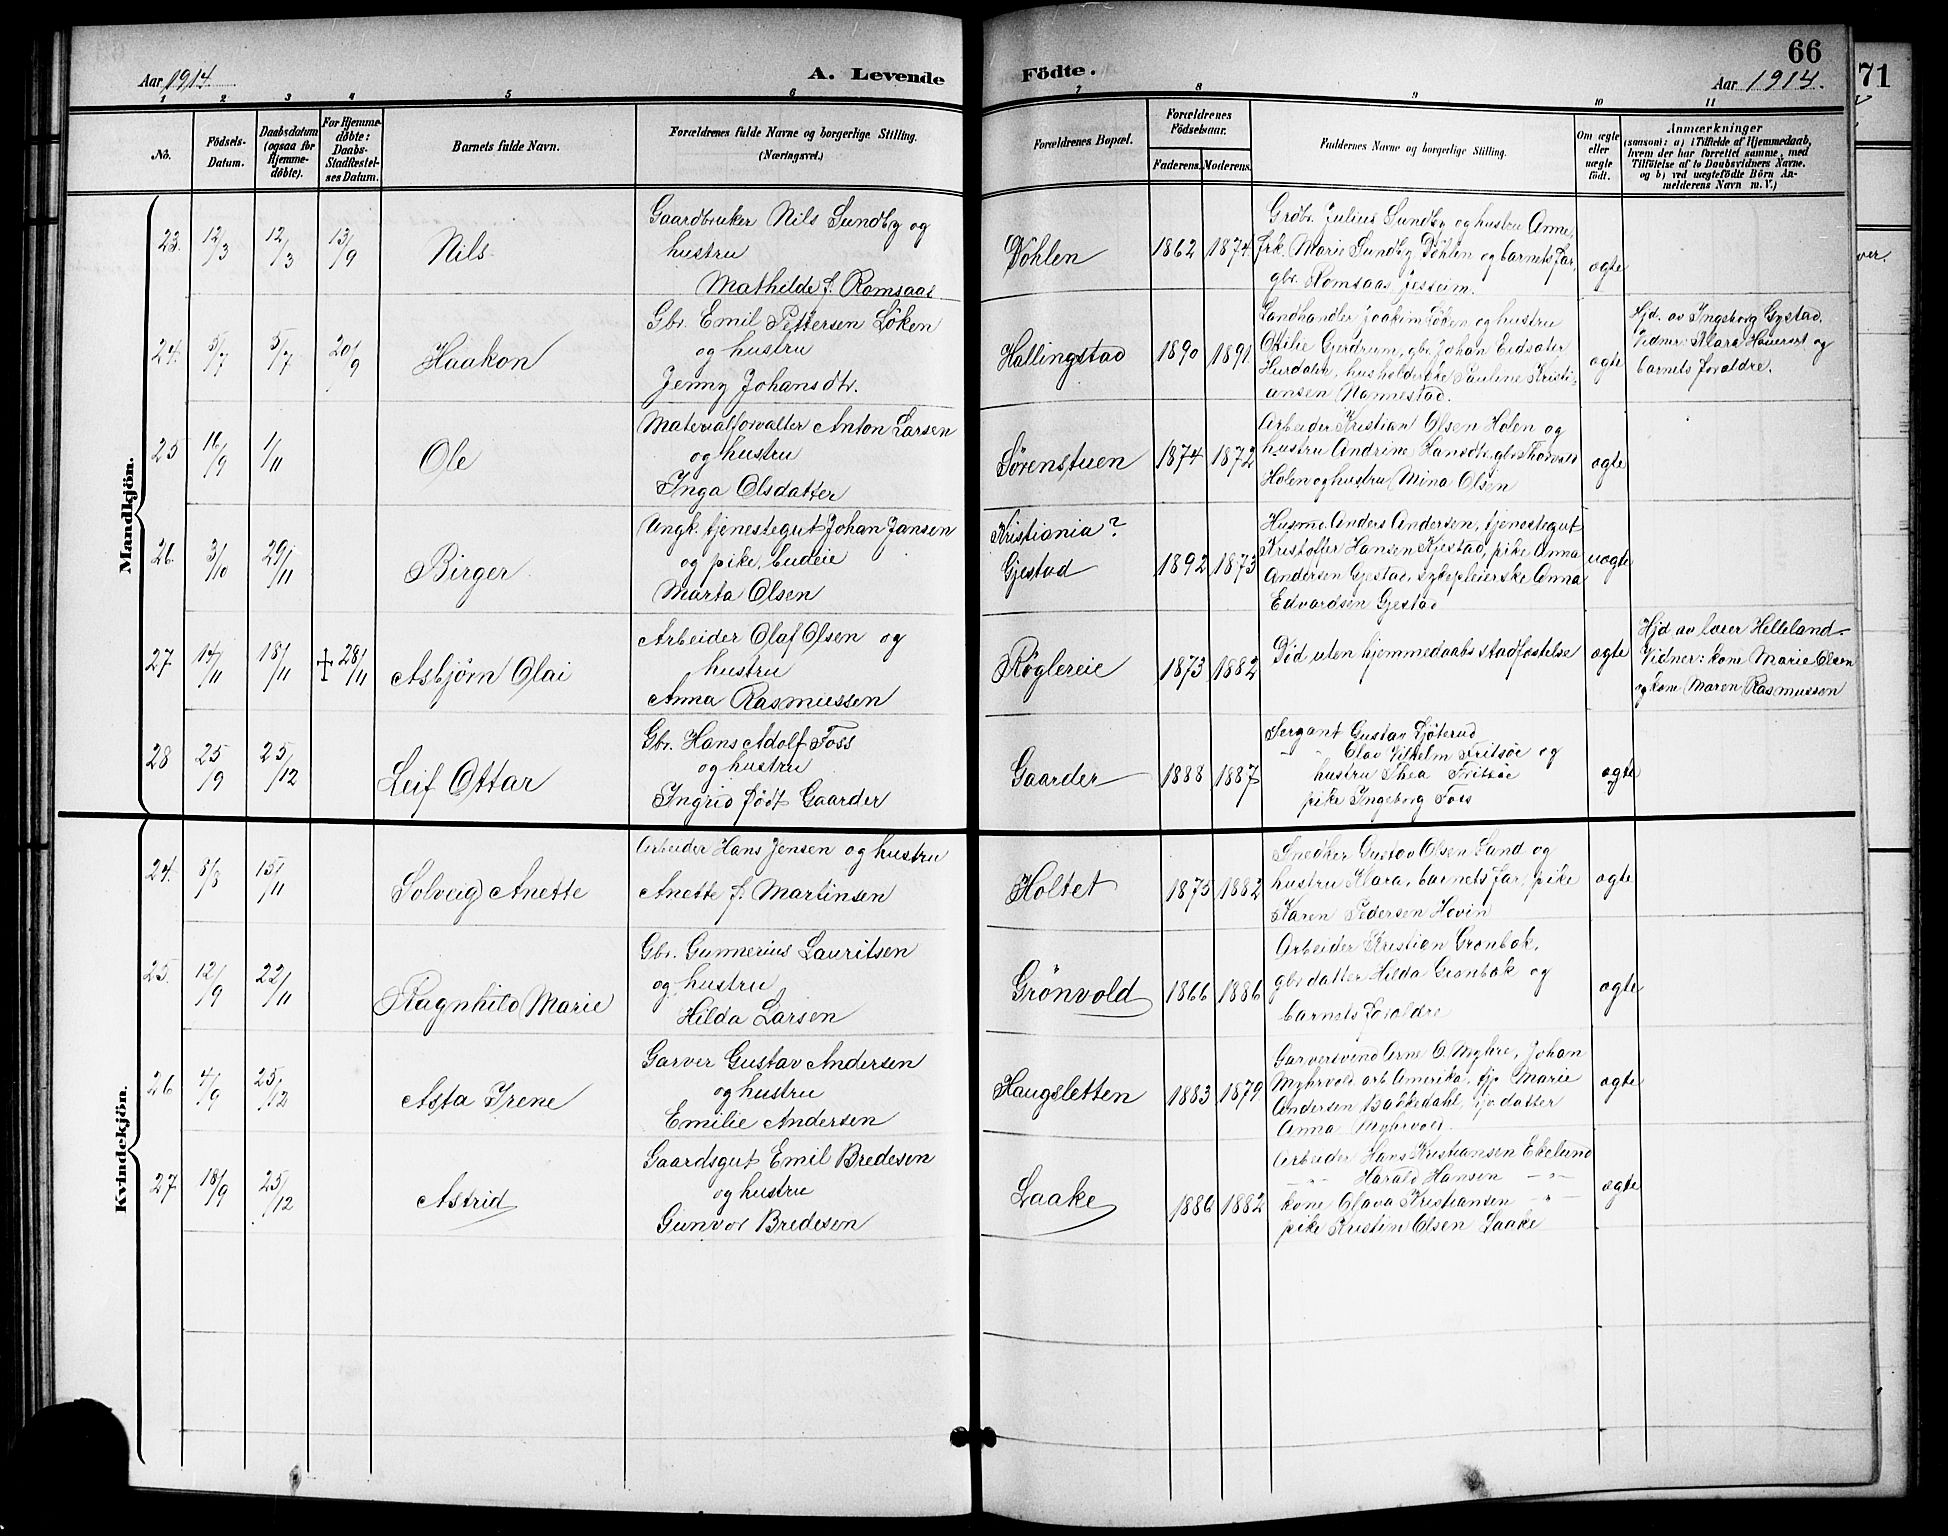 66
71
Aar 1914.
A. Levende
Födte.
Aar 1914.
1 2 3 4 5 6 7 8 9 10 11
No.
Födsels-Datum.
Daabsdatum (ogsaa for Hjemmedøbte).
For Hjemmedøbte: Daabs-Stadfæstelses Datum.
Barnets fulde Navn.
Forældrenes fulde Navne og borgerlige Stilling.
(Næringsvei.)
Forældrenes Bopæl.
Forældrenes Födselsaar.
Faderens. Moderens.
Faddernes Navne og borgerlige Stilling.
Om ægte eller uægte født.
Anmærkninger
(saasom: a) i Tilfælde af Hjemmedaab,
hvem der har forrettet samme, med
Tilföielse af to Daabsvidners Navne.
og b) ved uægtefödte Börn An-
melderens Navn m. V.)
Mandkjön.
23. 12/3 12/3 13/9 Nils
Gaardbruker Nils Sundby og
hustru
Mathilde f. Romsaas
Döhlen 1862 1874
Grdbr. Julius Sundby og hustru Anne,
frk. Marie Sundby Döhlen og barnets far,
gbr. Romsaas Jesseim.
ægte
24. 5/7 5/7 20/9 Haakon
Gbr. Emil Pettersen Löken
og hustru
Jenny Johansdtr.
Hallingstad 1890 1891
Landhandler Joakim Löken og hustru
Otilie Gjerdrum, gbr. Johan Eidsater
Hurdalen, husholderske Pauline Kristi-
ansen Nannestad.
ægte
Hjd. av Ingeborg Gystad.
Vidner: Klara og
barnets forældre.
25 16/9 1/11 Ole
Materialforvalter Anton Larsen
og hustru
Inga Olsdatter
Sørenstuen 1874 1872
Arbeider Kristian Olsen Holen og
hustru Andrine Hansdtr. gbr. Thorvald
Holen og hustru Mina Olsen
ægte
26. 3/10 29/11 Birger
Ungk. tjenestegut Johan Jansen
og pike, budeie
Marta Olsen
Kristiania?
Gjestad 1892 1873
Husm. Anders Andersen, tjenestegut
Kristoffer Hansen Kjestad, pike Anna
Andersen Gjestad, sykepleierske Anna
Edvardsen Gjestad
uægte
27 14/11 18/11 + 28/11 Asbjörn Olai
Arbeider Olaf Olsen og
hustru
Anna Rasmussen
Röglereie 1873 1882
Död uten hjemmedaabs stadfæstelse
ægte
Hjd av lærer Helleland.
Vidner: kone Marie Olsen
og kone Maren Rasmussen
28 25/9 25/12 Leif Ottar
Gbr. Hans Adolf Foss
og hustru
Ingrid födt Gaarder
Gaarder 1888 1887
Sergant Gustav Fjöterud
" Olav Vilhelm Fritsöe og
hustru Thea Fritsöe
pike Ingeborg Foss
ægte
Kvindekjön.
24. 8/8 15/11 Solveig Anette
Arbeider Hans Jensen og hustru
Anette f. Martinsen
Holtet 1875 1882
Snedker Gustav Olsen Sand og
hustru Klara, barnets far, pike
Karen Pedersen Hovin
ægte
25. 12/9 22/11 Ragnhild Marie
Gbr. Gunnerius Lauritsen
og hustru
Hilda Larsen
Grönvold 1866 1886
Arbeider Kristian Grönbæk,
gbr datter Hilda Grönbæk og
barnets forældre
ægte
26 4/9 25/12 Asta Irene
Garver Gustav Andersen
og hustru
Emilie Andersen
Haugsletten 1883 1879
Garversvend Arne O. Myhre, Johan
Myhrvold arb. Amerika, tjp Marie
Andersen Bakkedahl, datter
Anna Myhrvold.
ægte
27 18/9 25/12 Astrid
Gaardsgut Emil Bredesen
og hustru
Gunvor Bredesen
Laake 1886 1882
Arbeider Hans Kristiansen Ekelund
" Harald Hansen "
kone Olava Kristiansen "
pike Kristine Olsen Laake
ægte